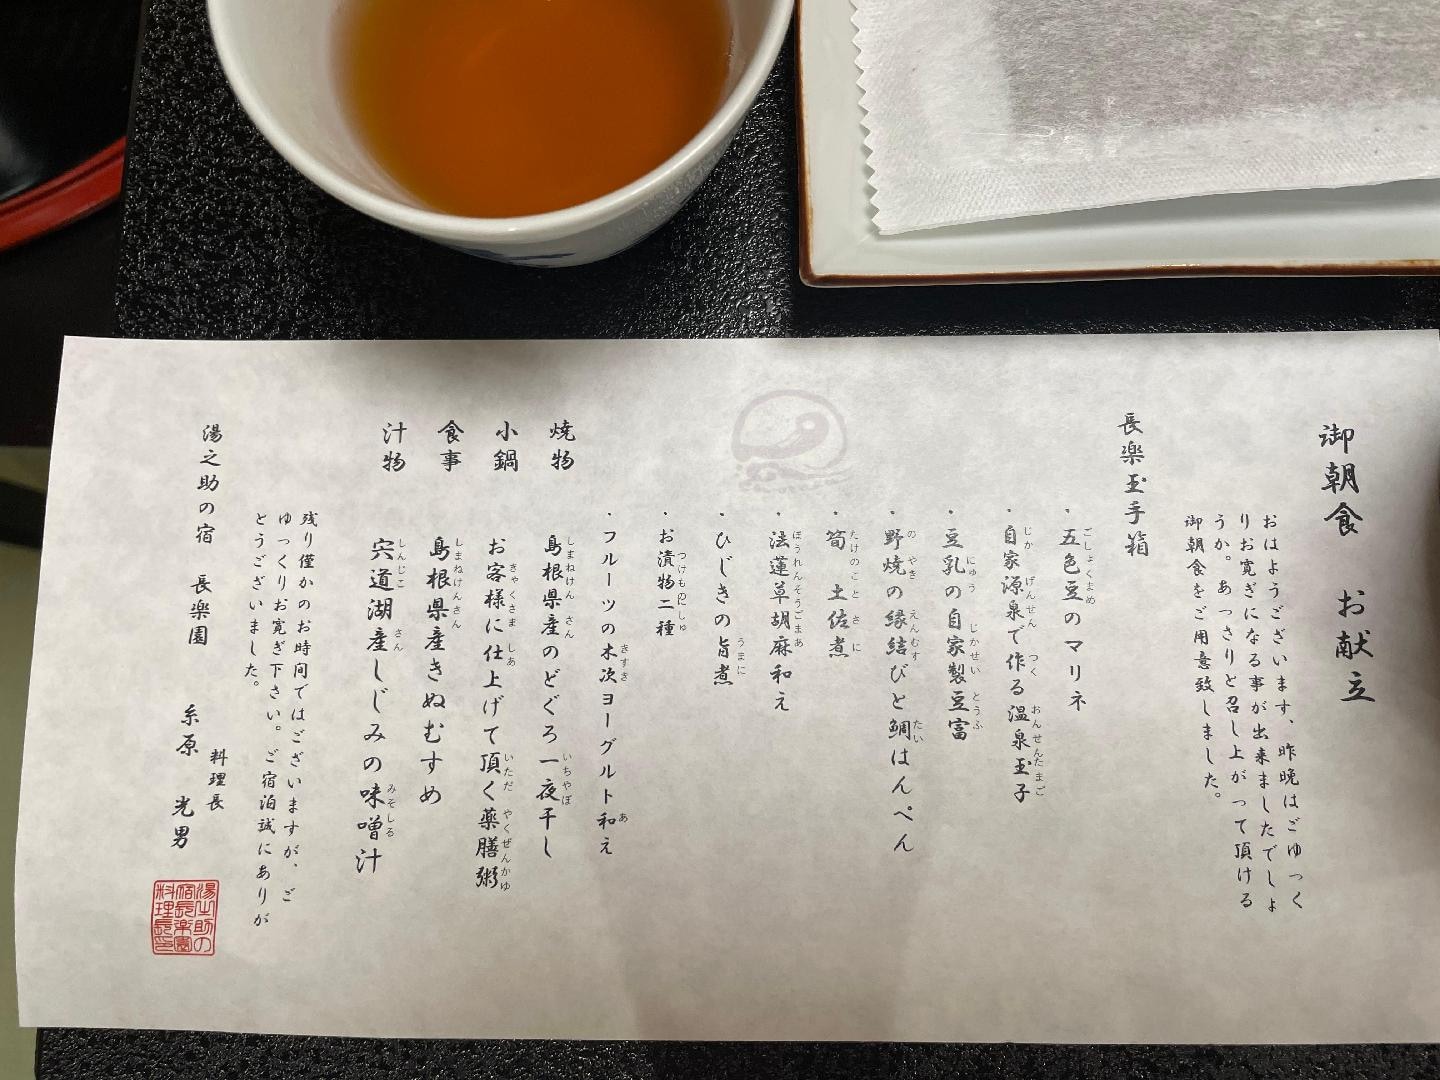 御朝食 お献立
おはようございます、昨晩はごゆっく
りお寛ぎになる事が出来ましたでしょ
うか。あっさりと召し上がって頂ける
御朝食をご用意致しました。
長楽玉手箱
・五色豆のマリネ
・自家源泉で作る温泉玉子
・豆乳の自家製豆富
・野焼の縁結びと鯛はんぺん
・筍土佐煮
・法蓮草胡麻和え
・ひじきの旨煮
・お漬物二種
・フルーツの木次ヨーグルト和え
焼物 島根県産のどぐろ一夜干し
小鍋 お客様に仕上げて頂く薬膳粥
食事 島根県産きぬむすめ
汁物 宍道湖産しじみの味噌汁
残り僅かのお時間ではございますが、ご
ゆっくりお寛ぎ下さい。ご宿泊誠にありが
とうございました。
湯之助の宿 長楽園
料理長
糸原 光男
湯之助の
宿長楽園
料理長印